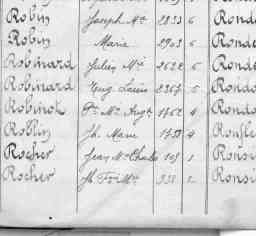 Robin Joseph Me 2833 6 Rondo
Robin Marie 2903 6 Ronde
Robinard Julien Me 2668 5 Rondo
Robinard Eug. Louis 2367 5 Rondo
Robinot Pre Me Aug. 1762 4 Rondo
Roblin Jh. Marie 1758 4 Ronfle
Rocher Jean Me Charles 109 1 Ronsi
Rocher Jh 938 2 Ronsi